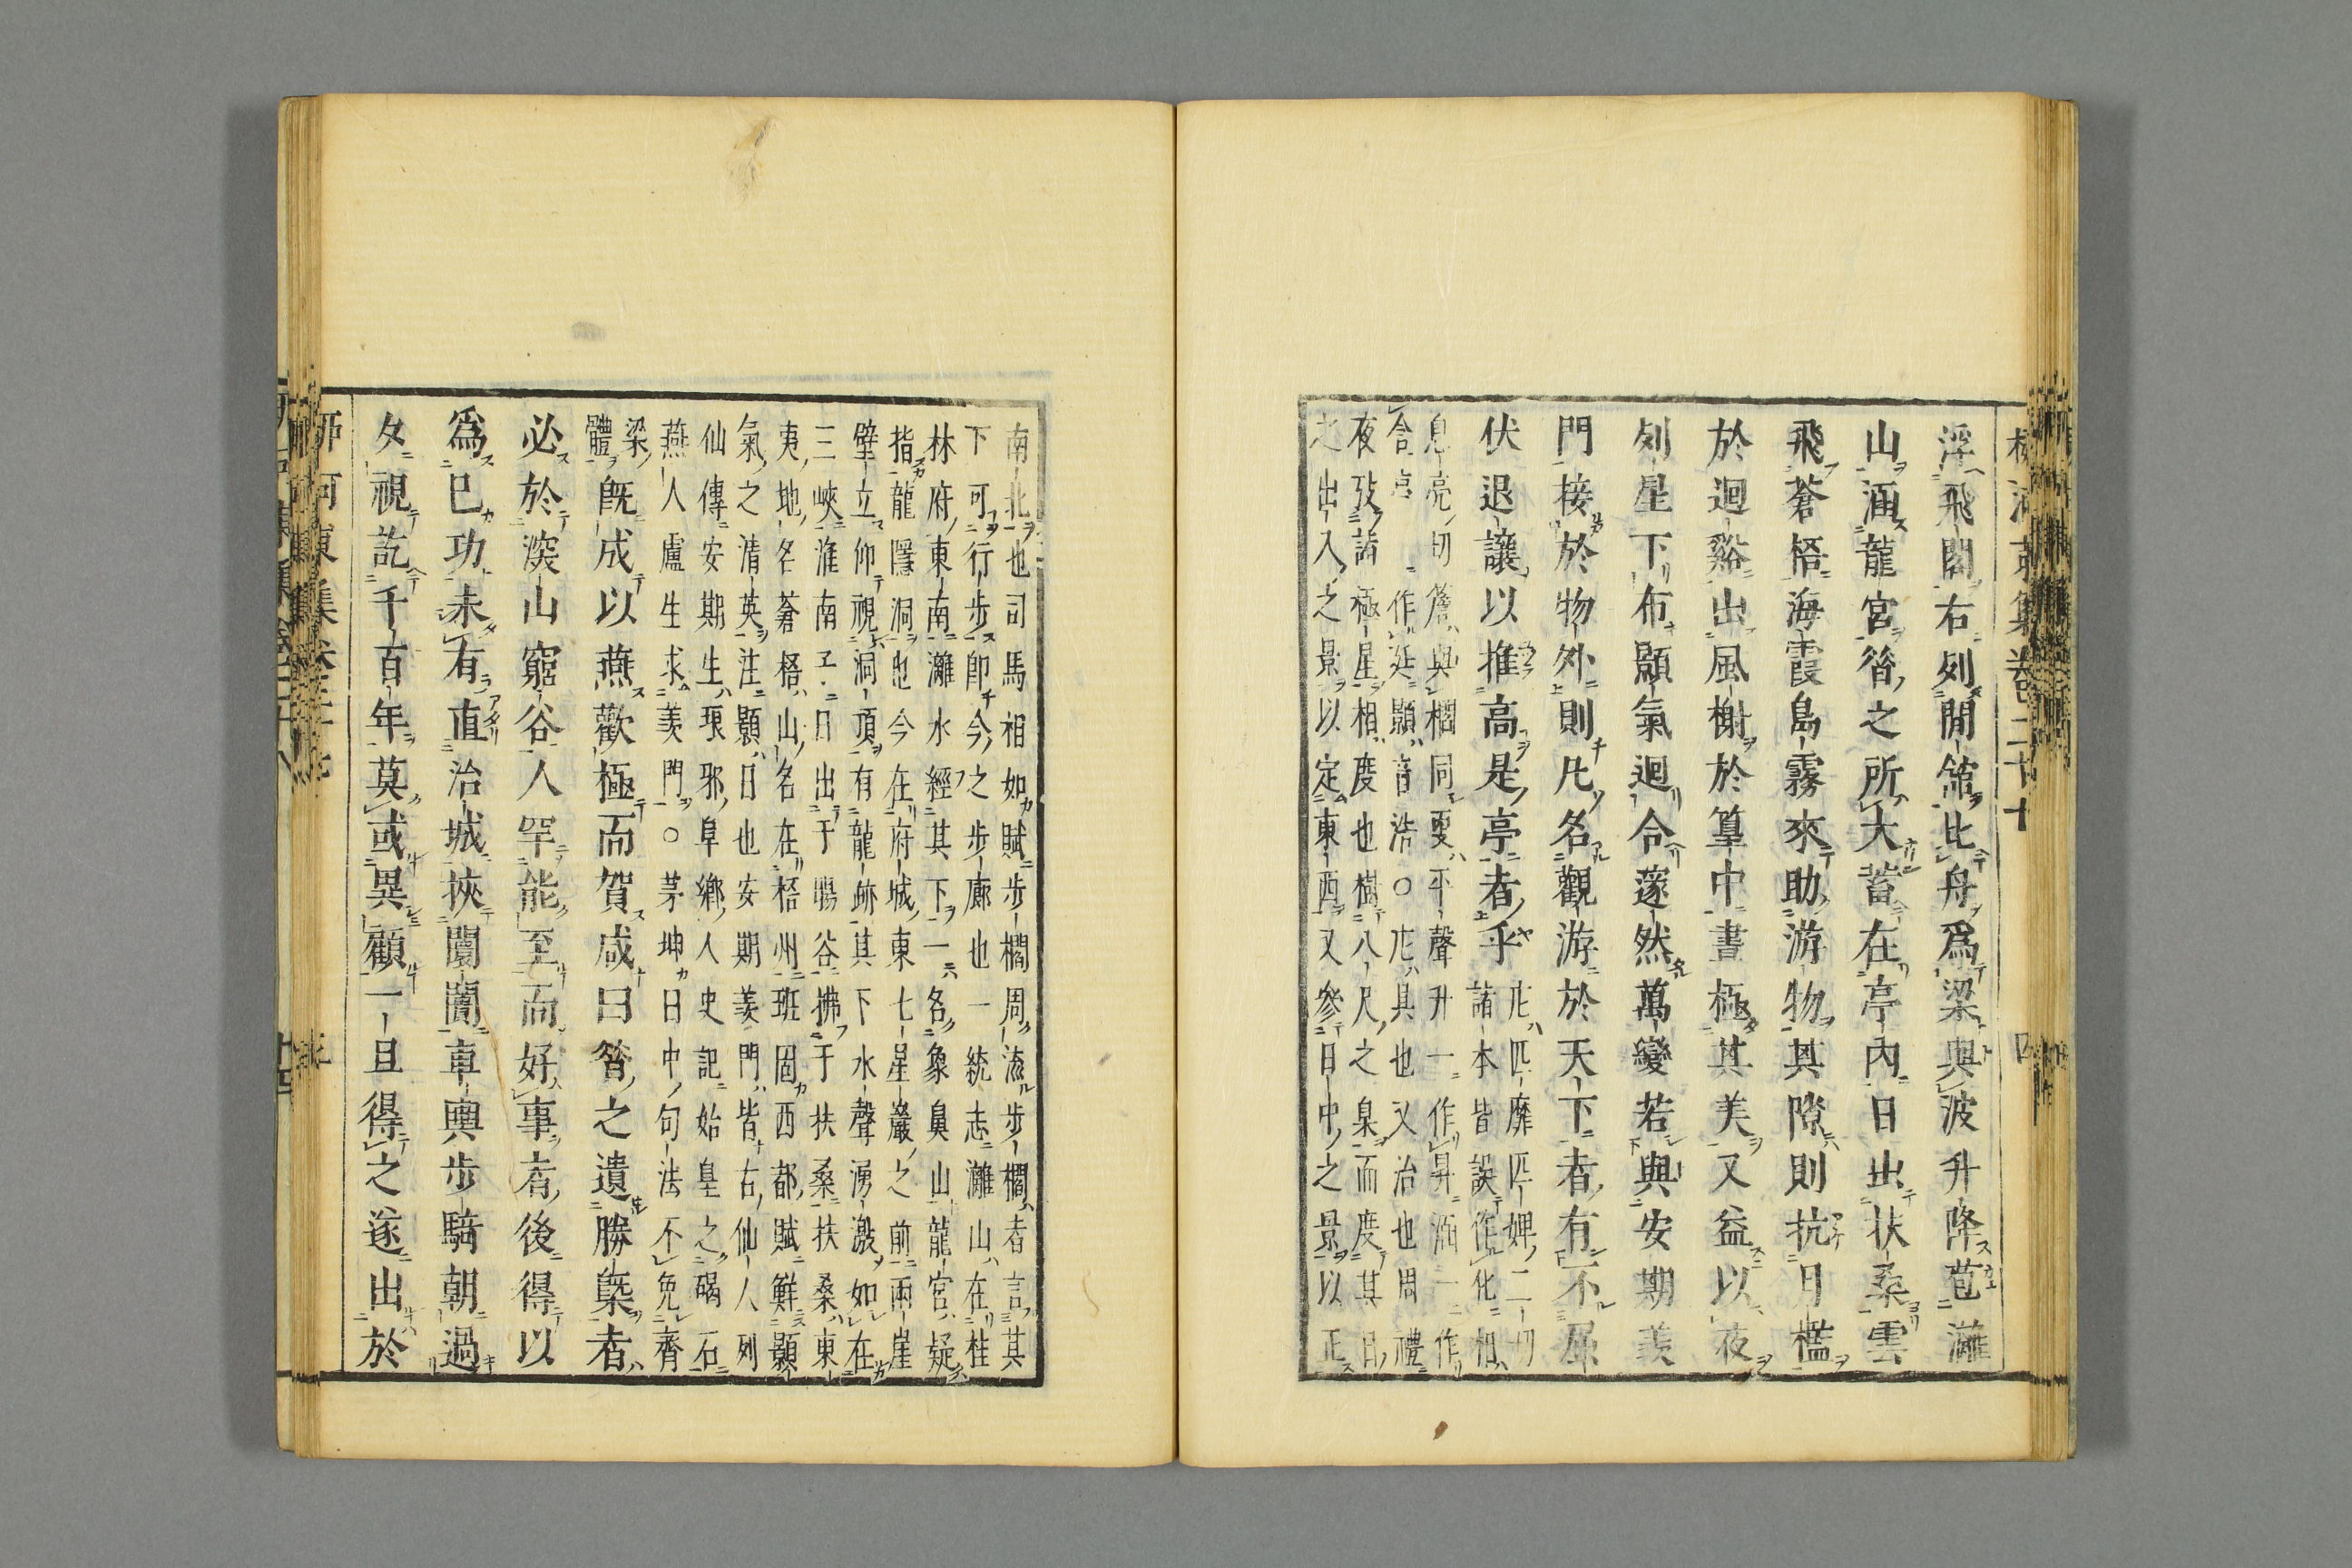 浮飛閣右列閒舘比舟爲梁與波升降苞灕
山涵龍宮昝之所大蓄在亭内日出扶桑雲
飛蒼梧海霞島霧來助游物其隙則抗月檻
於迴谿出風榭於篁中晝極其美又益以夜
列星下布顥氣迴令邃然萬變若與安期羨
門接於物外則凡名觀游於天下者有不屈
伏退讓以推高是亭者乎
庀匹靡匹婢二切
諸本皆誤作化相
息亮切簷與櫩同更平聲升一作昇涵一作
含 作 顥音浩○庀具也又治也周禮
夜攷諸極星相度也樹八尺之臬而度其日
之出入之景以定東西又參日中之景以正
南北也司馬相如賦步櫩周流步櫩者言其
下可行步即今之步廊也一統志灕山在桂
林府東南灕水經其下一名象鼻山龍宮疑
指龍隱洞也今在府城東七星巖之前兩崖
壁立仰視洞頂有龍跡其下水聲湧激如在
三峽淮南子日出于暘谷拂于扶桑扶桑東
夷地名蒼梧山名在梧州班固西都賦鮮顥
氣之清英注顥日也安期羨門皆古仙人列
仙傳安期生琅邪阜鄉人史記始皇之碣石
燕人盧生求羨門○茅坤曰中句法不免齊
梁
體
既成以燕歡極而賀咸曰昝之遺勝槩者
必於深山窮谷人罕能至而好事者後得以
爲已功未有直治城挾闤闠車輿步騎朝過
夕視訖千百年莫或異顧一旦得之遂出於